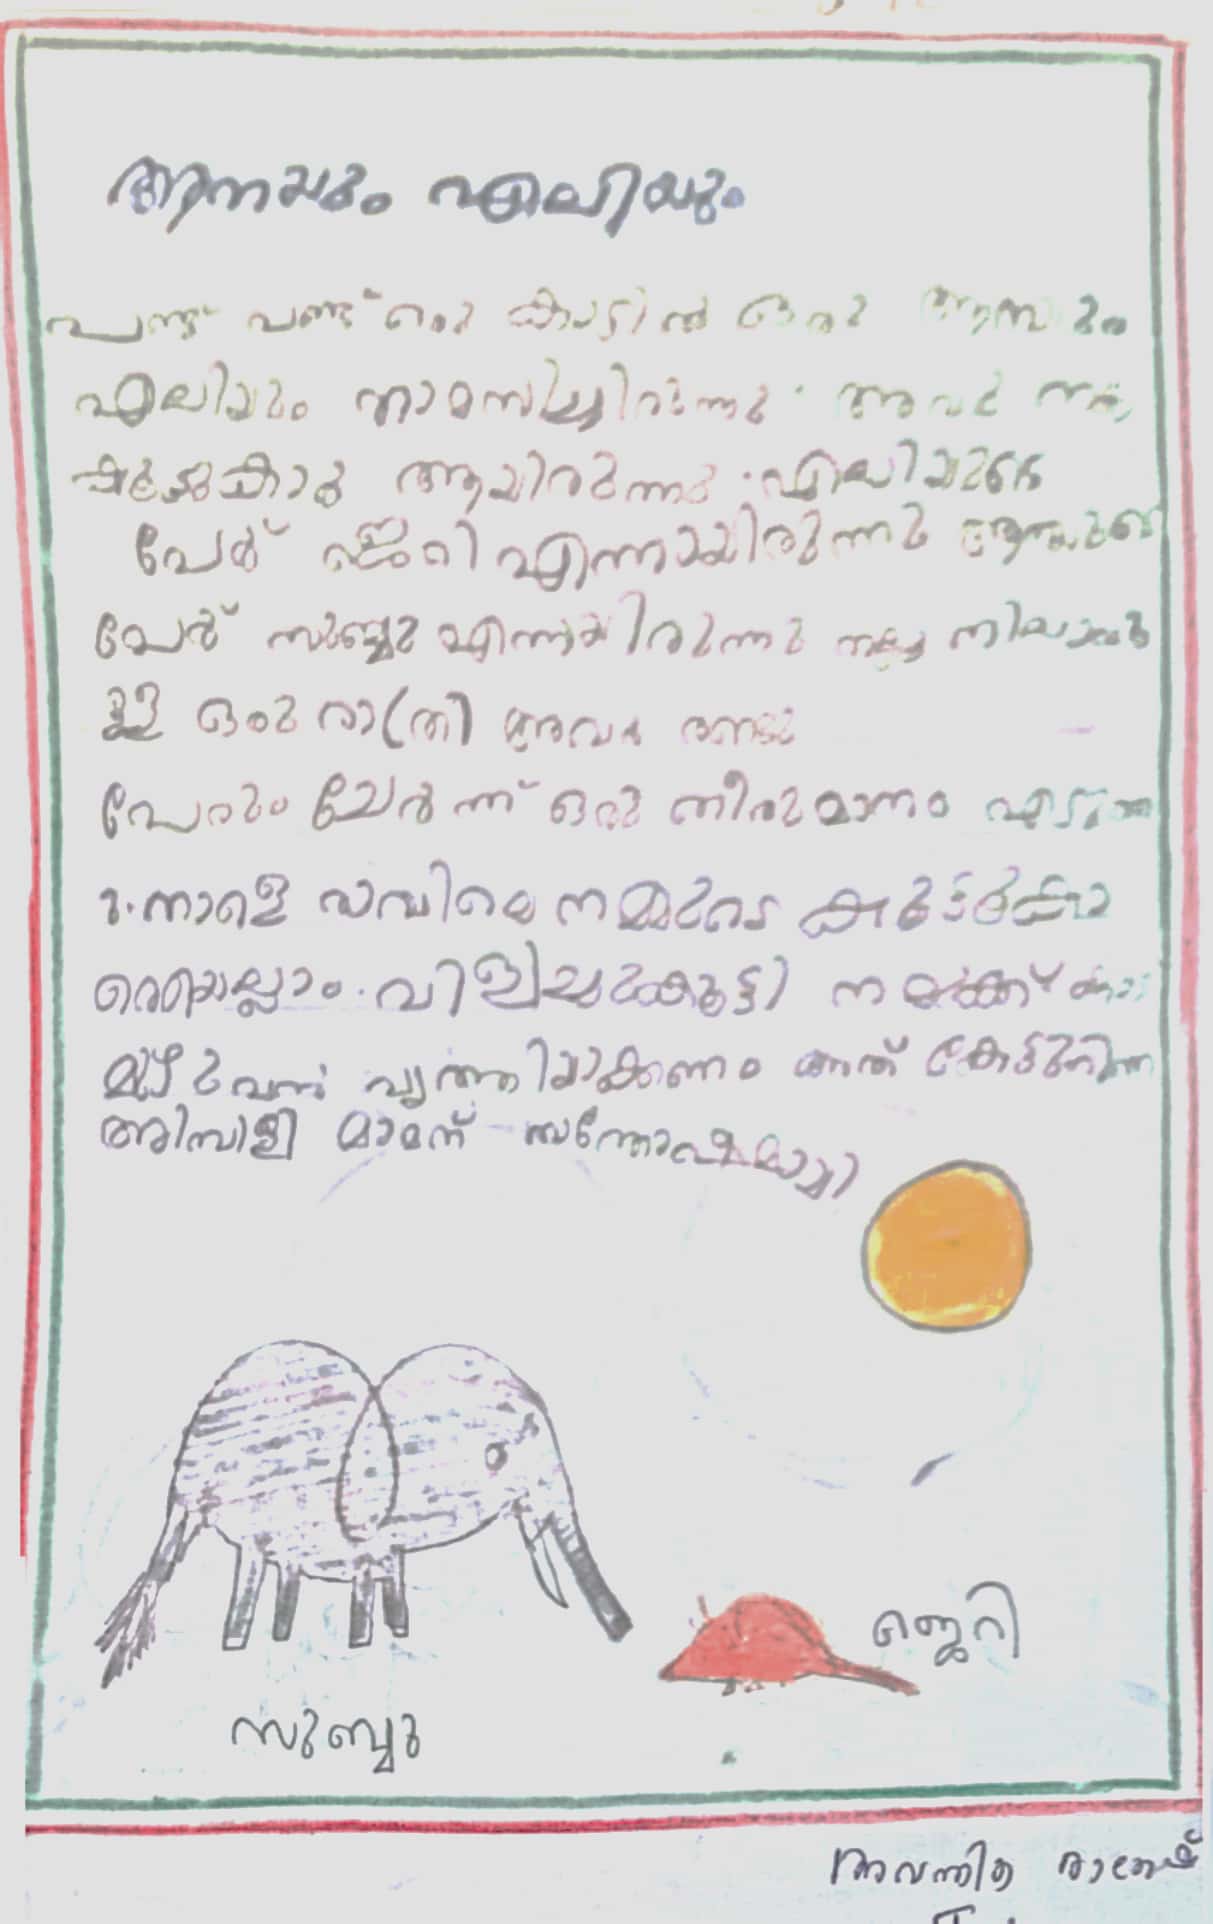 ആനയും എലിയും
പണ്ട് പണ്ട് ഒരു കാട്ടിൽ ഒരു ആനയും
എലിയും താമസിച്ചിരുന്നു. അവർ നല്ല
കൂട്ടുകാരു ആയിരുന്നു. എലിയുടെ
പേര് ജെറി എന്നായിരുന്നു ആനയുടെ
പേര് സുബ്ബു എന്നായിരുന്നു നല്ല നിലാവു
ള്ള ഒരു രാത്രി അവർ രണ്ടു
പേരും ചേർന്ന് ഒരു തീരുമാനം എടുത്തു
നാളെ നമ്മുടെ കൂട്ടുകാ
രെയെല്ലാം വിളിച്ചുകൂട്ടി നമുക്ക് കാട്
മുഴുവനും വൃത്തിയാക്കണം അത് കേട്ടുനിന്ന
അമ്പിളി മാമന് സന്തോഷമായി
ജെറി
സുബ്ബു
അവന്തിക രാജേഷ്